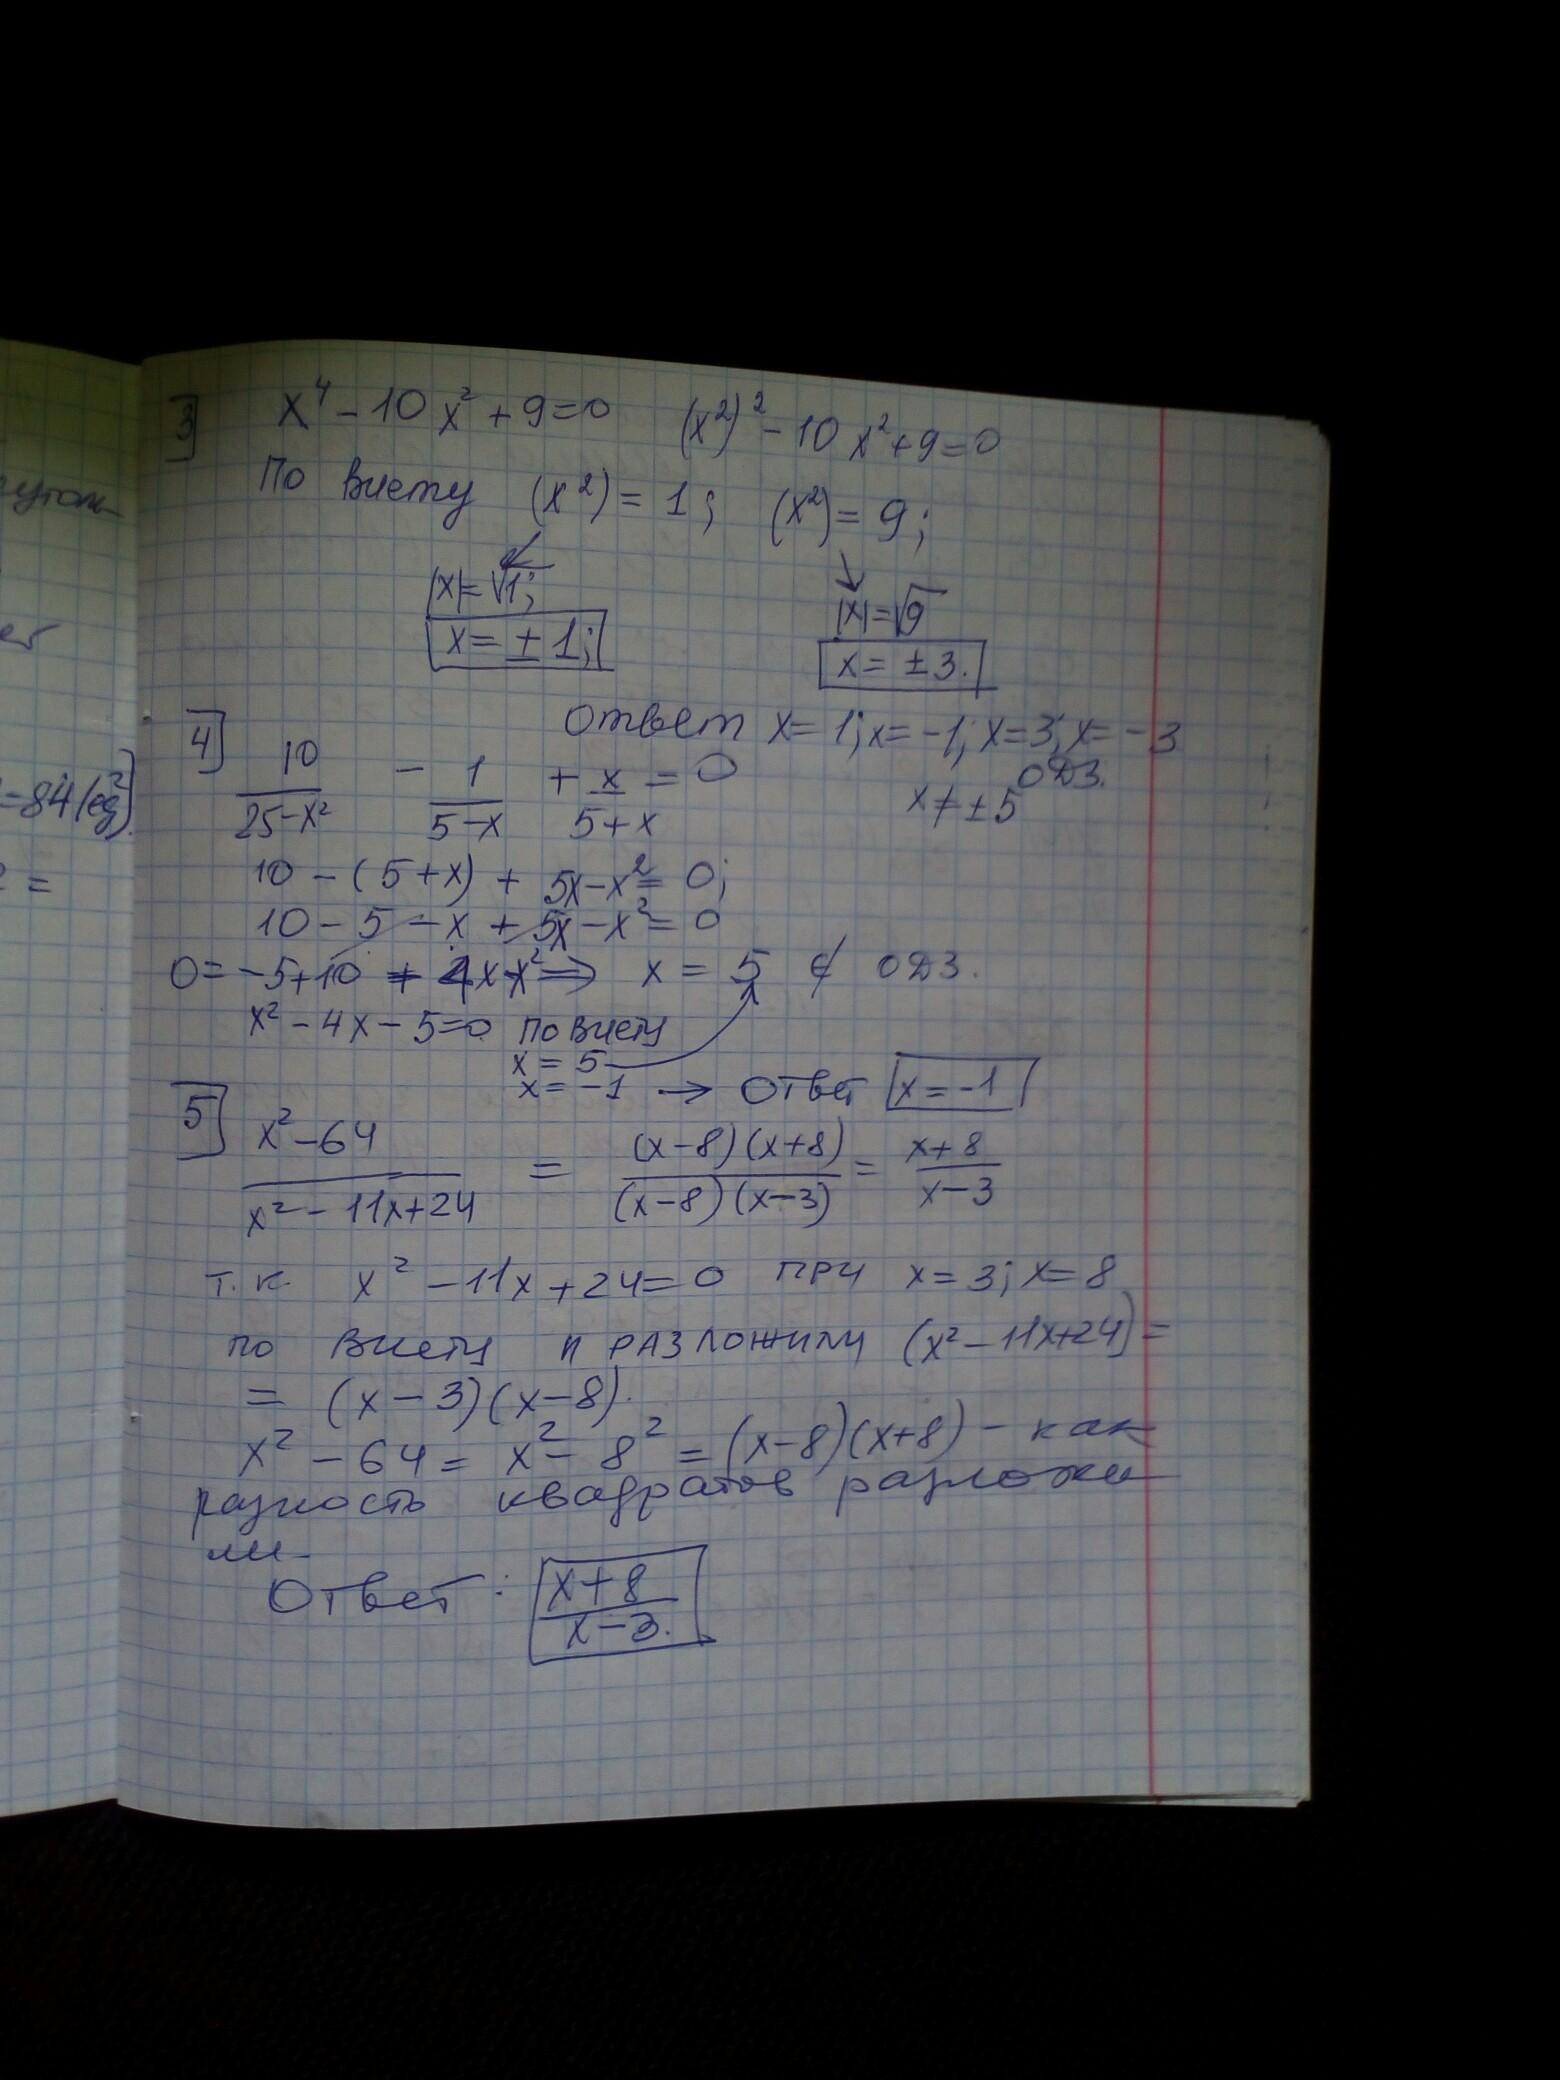 =84(ед²)
=
3] x⁴ - 10x² + 9 = 0 (x²)² - 10x² + 9 = 0
По Виету (x²) = 1; (x²) = 9;
|x| = √1; |x| = √9
x = ± 1; x = ± 3.
Ответ x = 1; x = -1; x = 3; x = -3
4] 10/(25-x²) - 1/(5-x) + x/(5+x) = 0 ОДЗ. x ≠ ± 5
10 - (5+x) + 5x - x² = 0;
10 - 5 - x + 5x - x² = 0
0 = -5+10 + 4x - x² ⇒ x = 5 ∉ ОДЗ.
x² - 4x - 5 = 0 по Виету
x = 5
x = -1 → Ответ x = -1
5] (x² - 64)/(x² - 11x + 24) = (x-8)(x+8)/(x-8)(x-3) = (x+8)/(x-3)
т.к. x² - 11x + 24 = 0 при x = 3; x = 8
по Виету и разложили (x² - 11x + 24) =
= (x - 3)(x - 8).
x² - 64 = x² - 8² = (x-8)(x+8) - как
разность квадратов разложи
ли.
Ответ: (x+8)/(x-3).